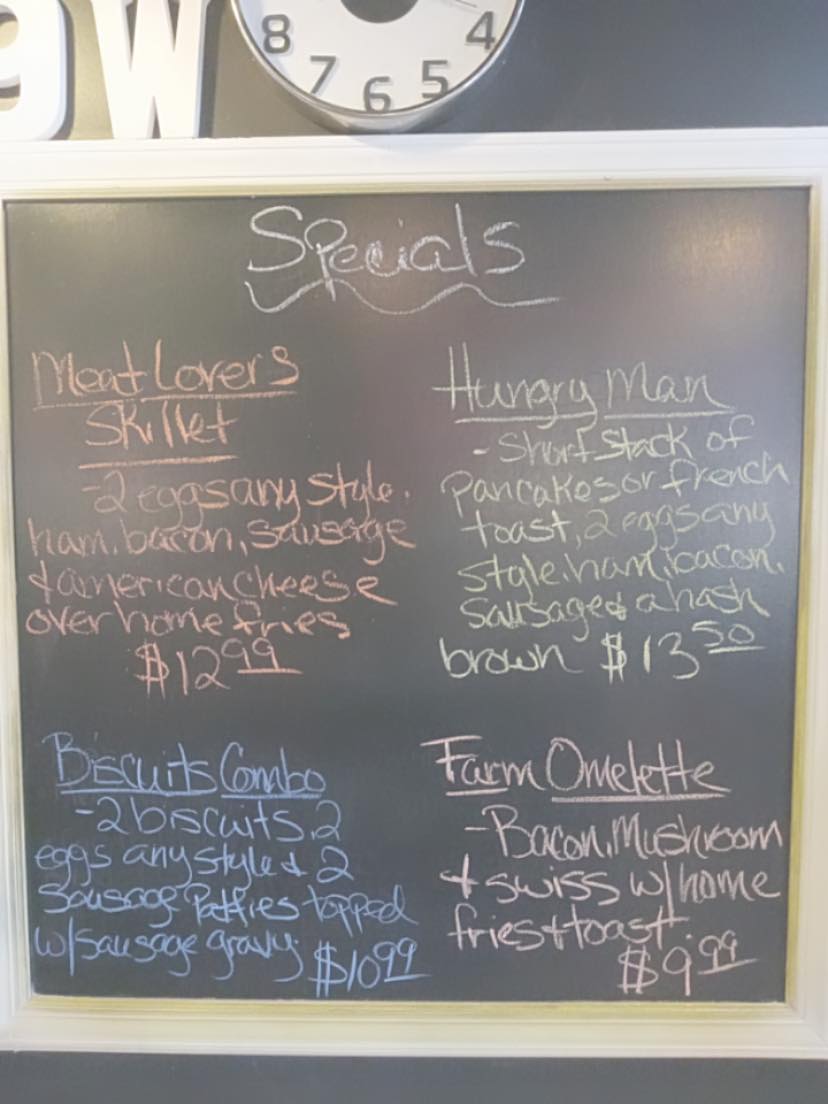 9 W
8 7 6 5 4
Specials
Meat Lovers
Skillet
-2 eggs any style,
ham, bacon, sausage
& american cheese
over home fries
$12.99
Hungry Man
- Short stack of
Pancakes or french
toast, 2 eggs any
style, ham, bacon,
sausage & a hash
brown $13.50
Biscuits Combo
-2 biscuits, 2
eggs any style & 2
Sausage Patties topped
w/ sausage gravy. $10.99
Farm Omelette
- Bacon, Mushroom
& swiss w/ home
fries + toast.
$9.99